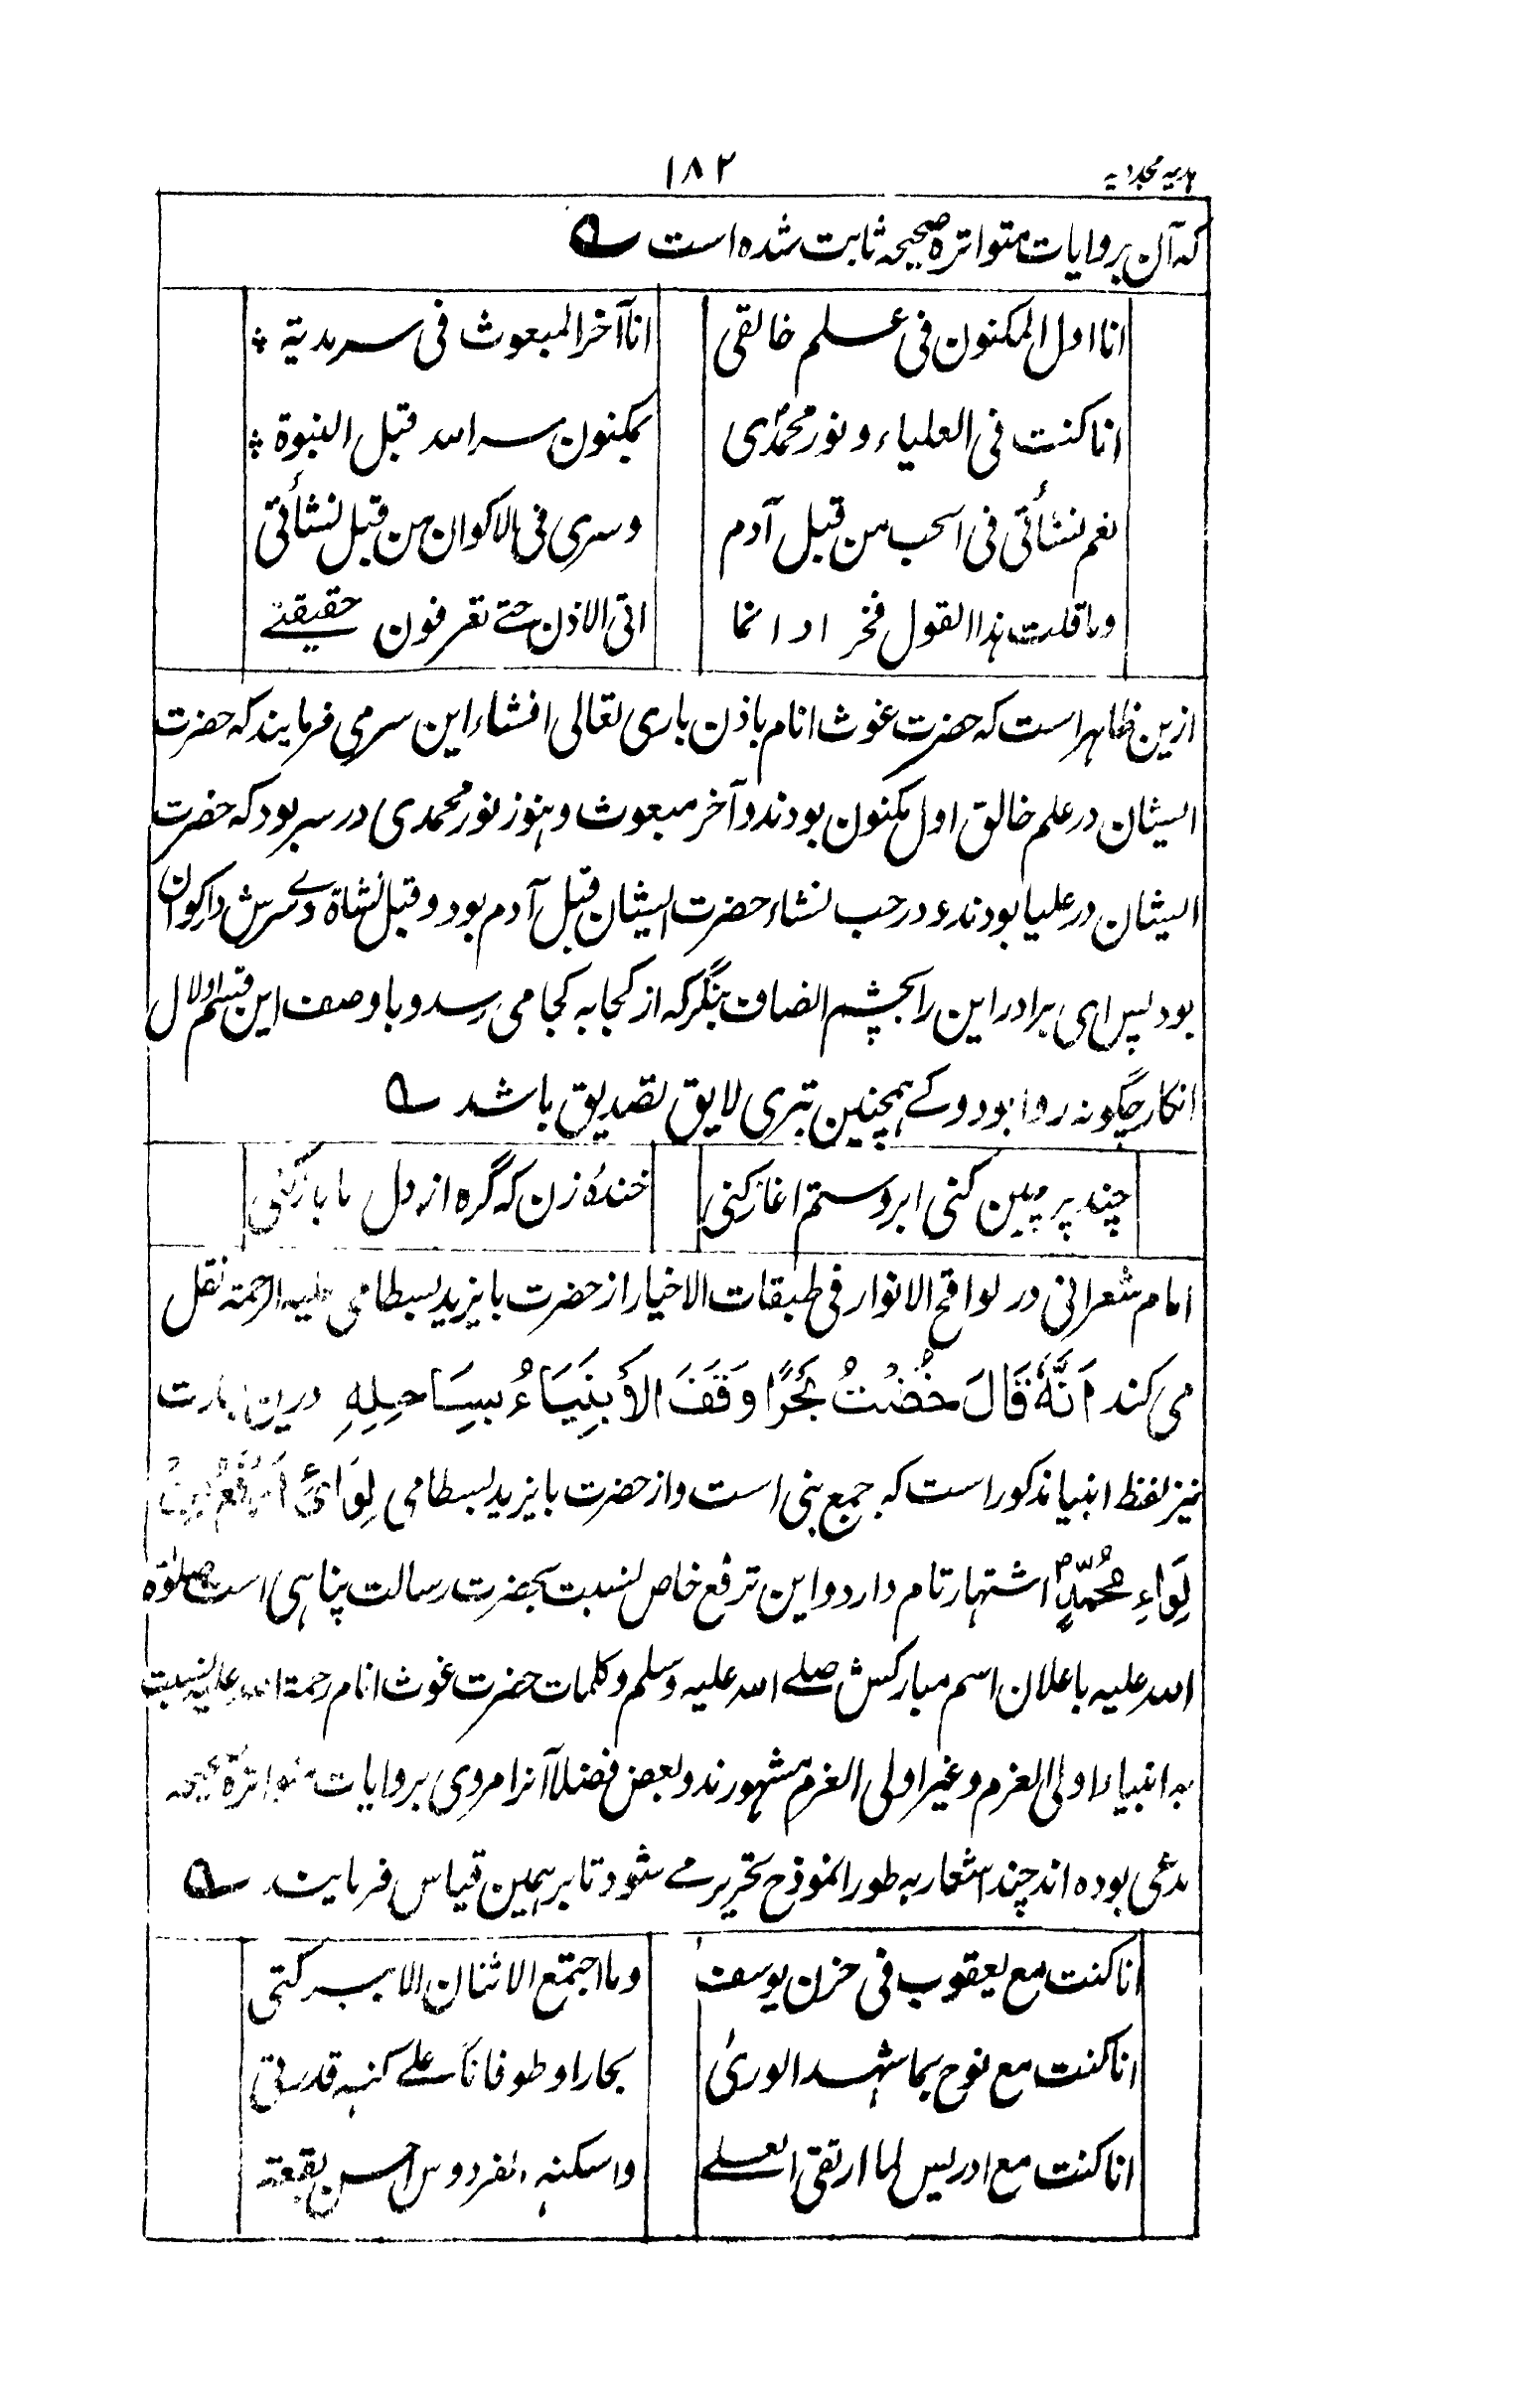 ہدیہ مجددیہ
۱۸۲
کہ آن بروایات متواترہ صحیحہ ثابت شدہ است
انا اول المکنون فی علم خالقی    انا آخر المبعوث فی سرمدیتہ
انا کنت فی العلیاء و نور محمدی    بمکنون سر اللہ قبل النبوۃ
نعم نشأتی فی الحب من قبل آدم    و سری فی الاکوان من قبل نشأتی
وما قلت ہذا القول فخرا وانما    اتی الاذن حتے تعرفون حقیقتے
ازین ظاہر است کہ حضرت غوث انام باذن باری تعالی افشاء این سر می فرمایند کہ حضرت
ایشان در علم خالق اول مکنون بودند و آخر مبعوث و ہنوز نور محمدی در سر بود کہ حضرت
ایشان در علیا بودند و در حب نشاء حضرت ایشان قبل آدم بود و قبل نشاۃ وے سرش در اکوان
بود پس ای برادر این را بچشم انصاف بنگر کہ از کجا بہ کجا می رسد و با وصف این قسم اولال
انکار چگونہ روا بود و کے ہمچنین تبری لایق تصدیق باشد
چند پر چین کنی ابرو ستم اغاز کنی    خندۂ زن کہ گرہ از دل ما باز کنی
امام شعرانی در لواقح الانوار فی طبقات الاخیار از حضرت بایزید بسطامی علیہ الرحمۃ نقل
می کند اَنَّہٗ قَالَ خُضْتُ بَحْرًا وَقَفَ الْأَنْبِیَاءُ بِسَاحِلِہِ درین عبارت
نیز لفظ انبیا مذکور است کہ جمع نبی است و از حضرت بایزید بسطامی لِوَائیْ اَرْفَعُ مِنْ
لِوَاءِ مُحَمَّدٍ اشتہار تام دارد و این ترفع خاص نسبت بحضرت رسالت پناہی است صلوٰۃ
اللہ علیہ باعلان اسم مبارکش صلے اللہ علیہ وسلم و کلمات حضرت غوث انام رحمۃ اللہ علیہ نسبت
بہ انبیاء اولی العزم و غیر اولی العزم مشہورند و بعض فضلا آنرا مروی بروایات متواترۂ صحیحہ
مدعی بودہ اند چند اشعار بہ طور انموذج تحریر مے شود تا برہمین قیاس فرمایند
انا کنت مع یعقوب فی حزن یوسف    وما اجتمع الاثنان الا ببرکتی
انا کنت مع نوح بما شہد الوریٰ    بحارا و طوفانا علے کنہ قدرتی
انا کنت مع ادریس لما ارتقی العلے    و اسکنہ الفردوس احسن بقعتہ